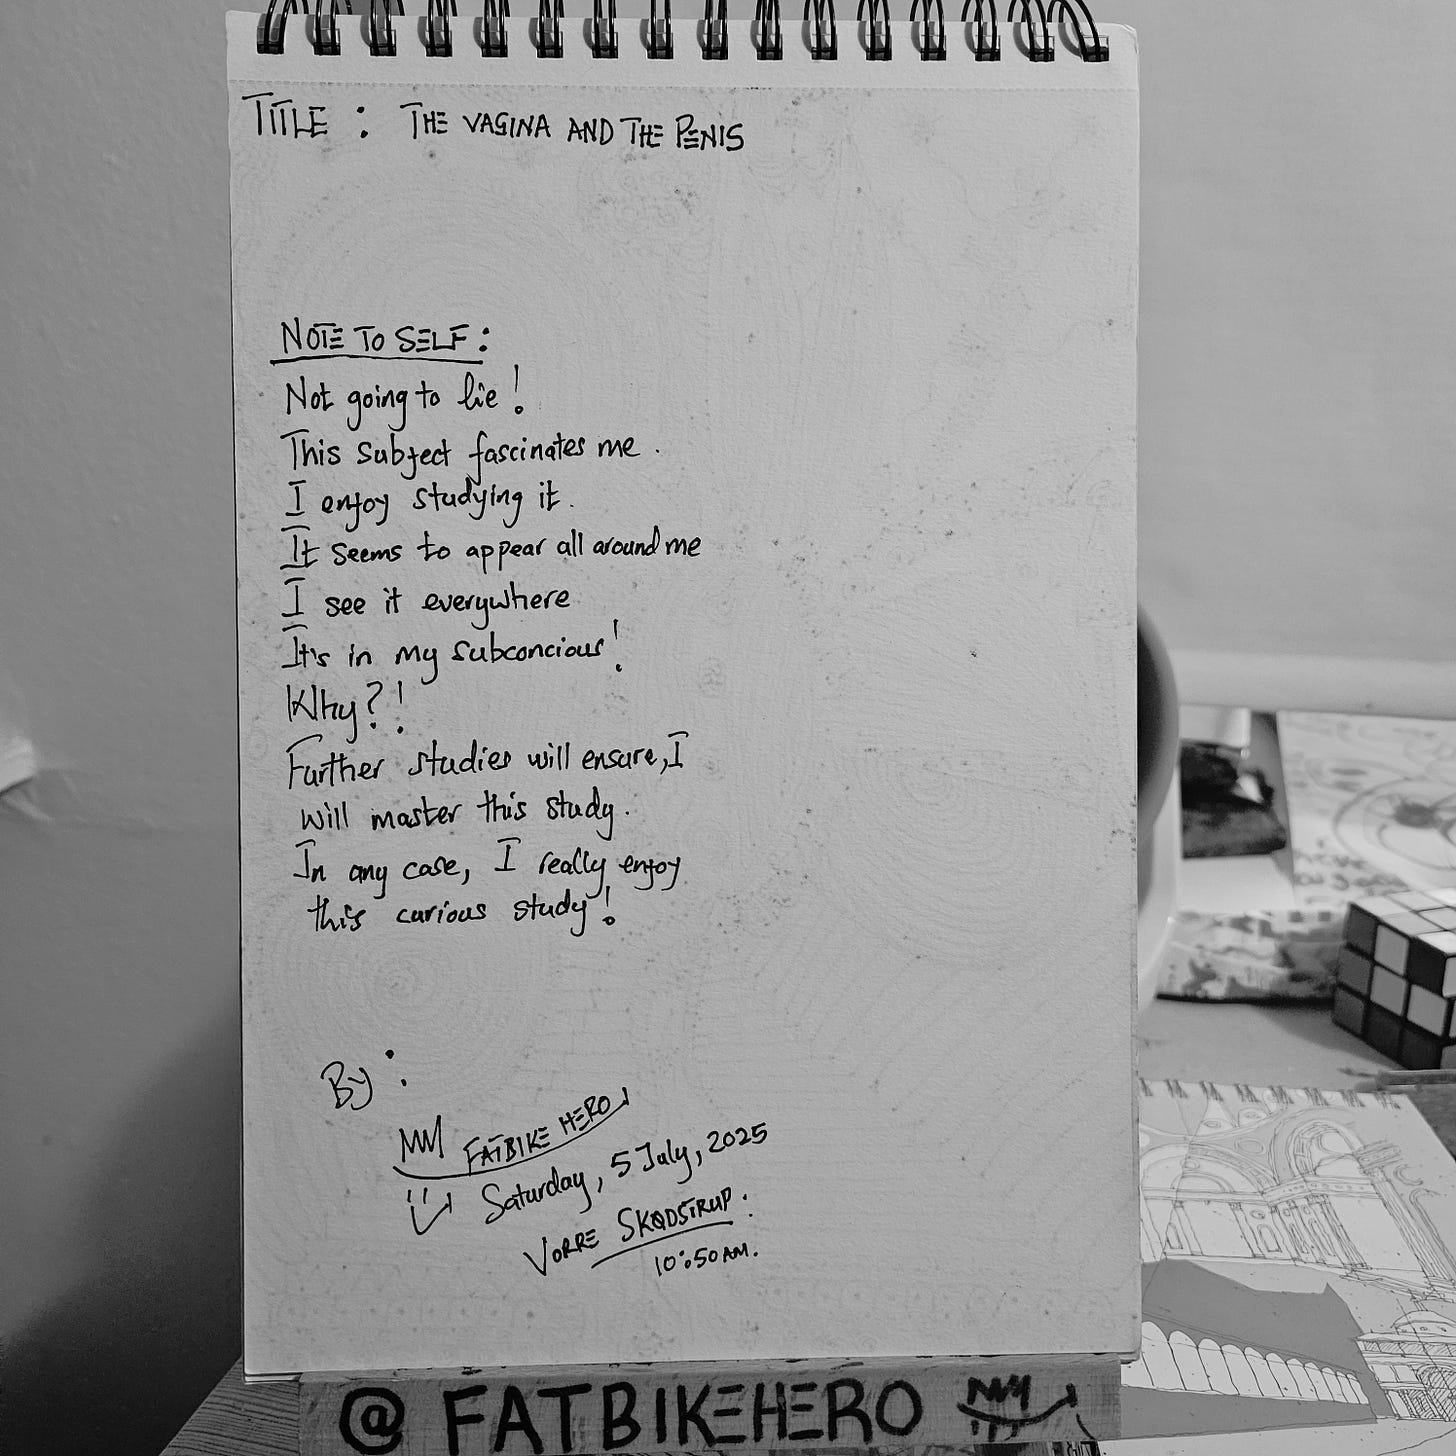 TITLE : THE VAGINA AND THE PENIS
NOTE TO SELF :
Not going to lie !
This subject fascinates me .
I enjoy studying it .
It seems to appear all around me
I see it everywhere
It's in my subconcious !
Why ? !
Further studies will ensure, I
will master this study .
In any case, I really enjoy
this curious study !
By :
FATBIKE HERO
Saturday, 5 July, 2025
VORRE SKØDSTRUP .
10:50 AM.
@ FATBIKEHERO